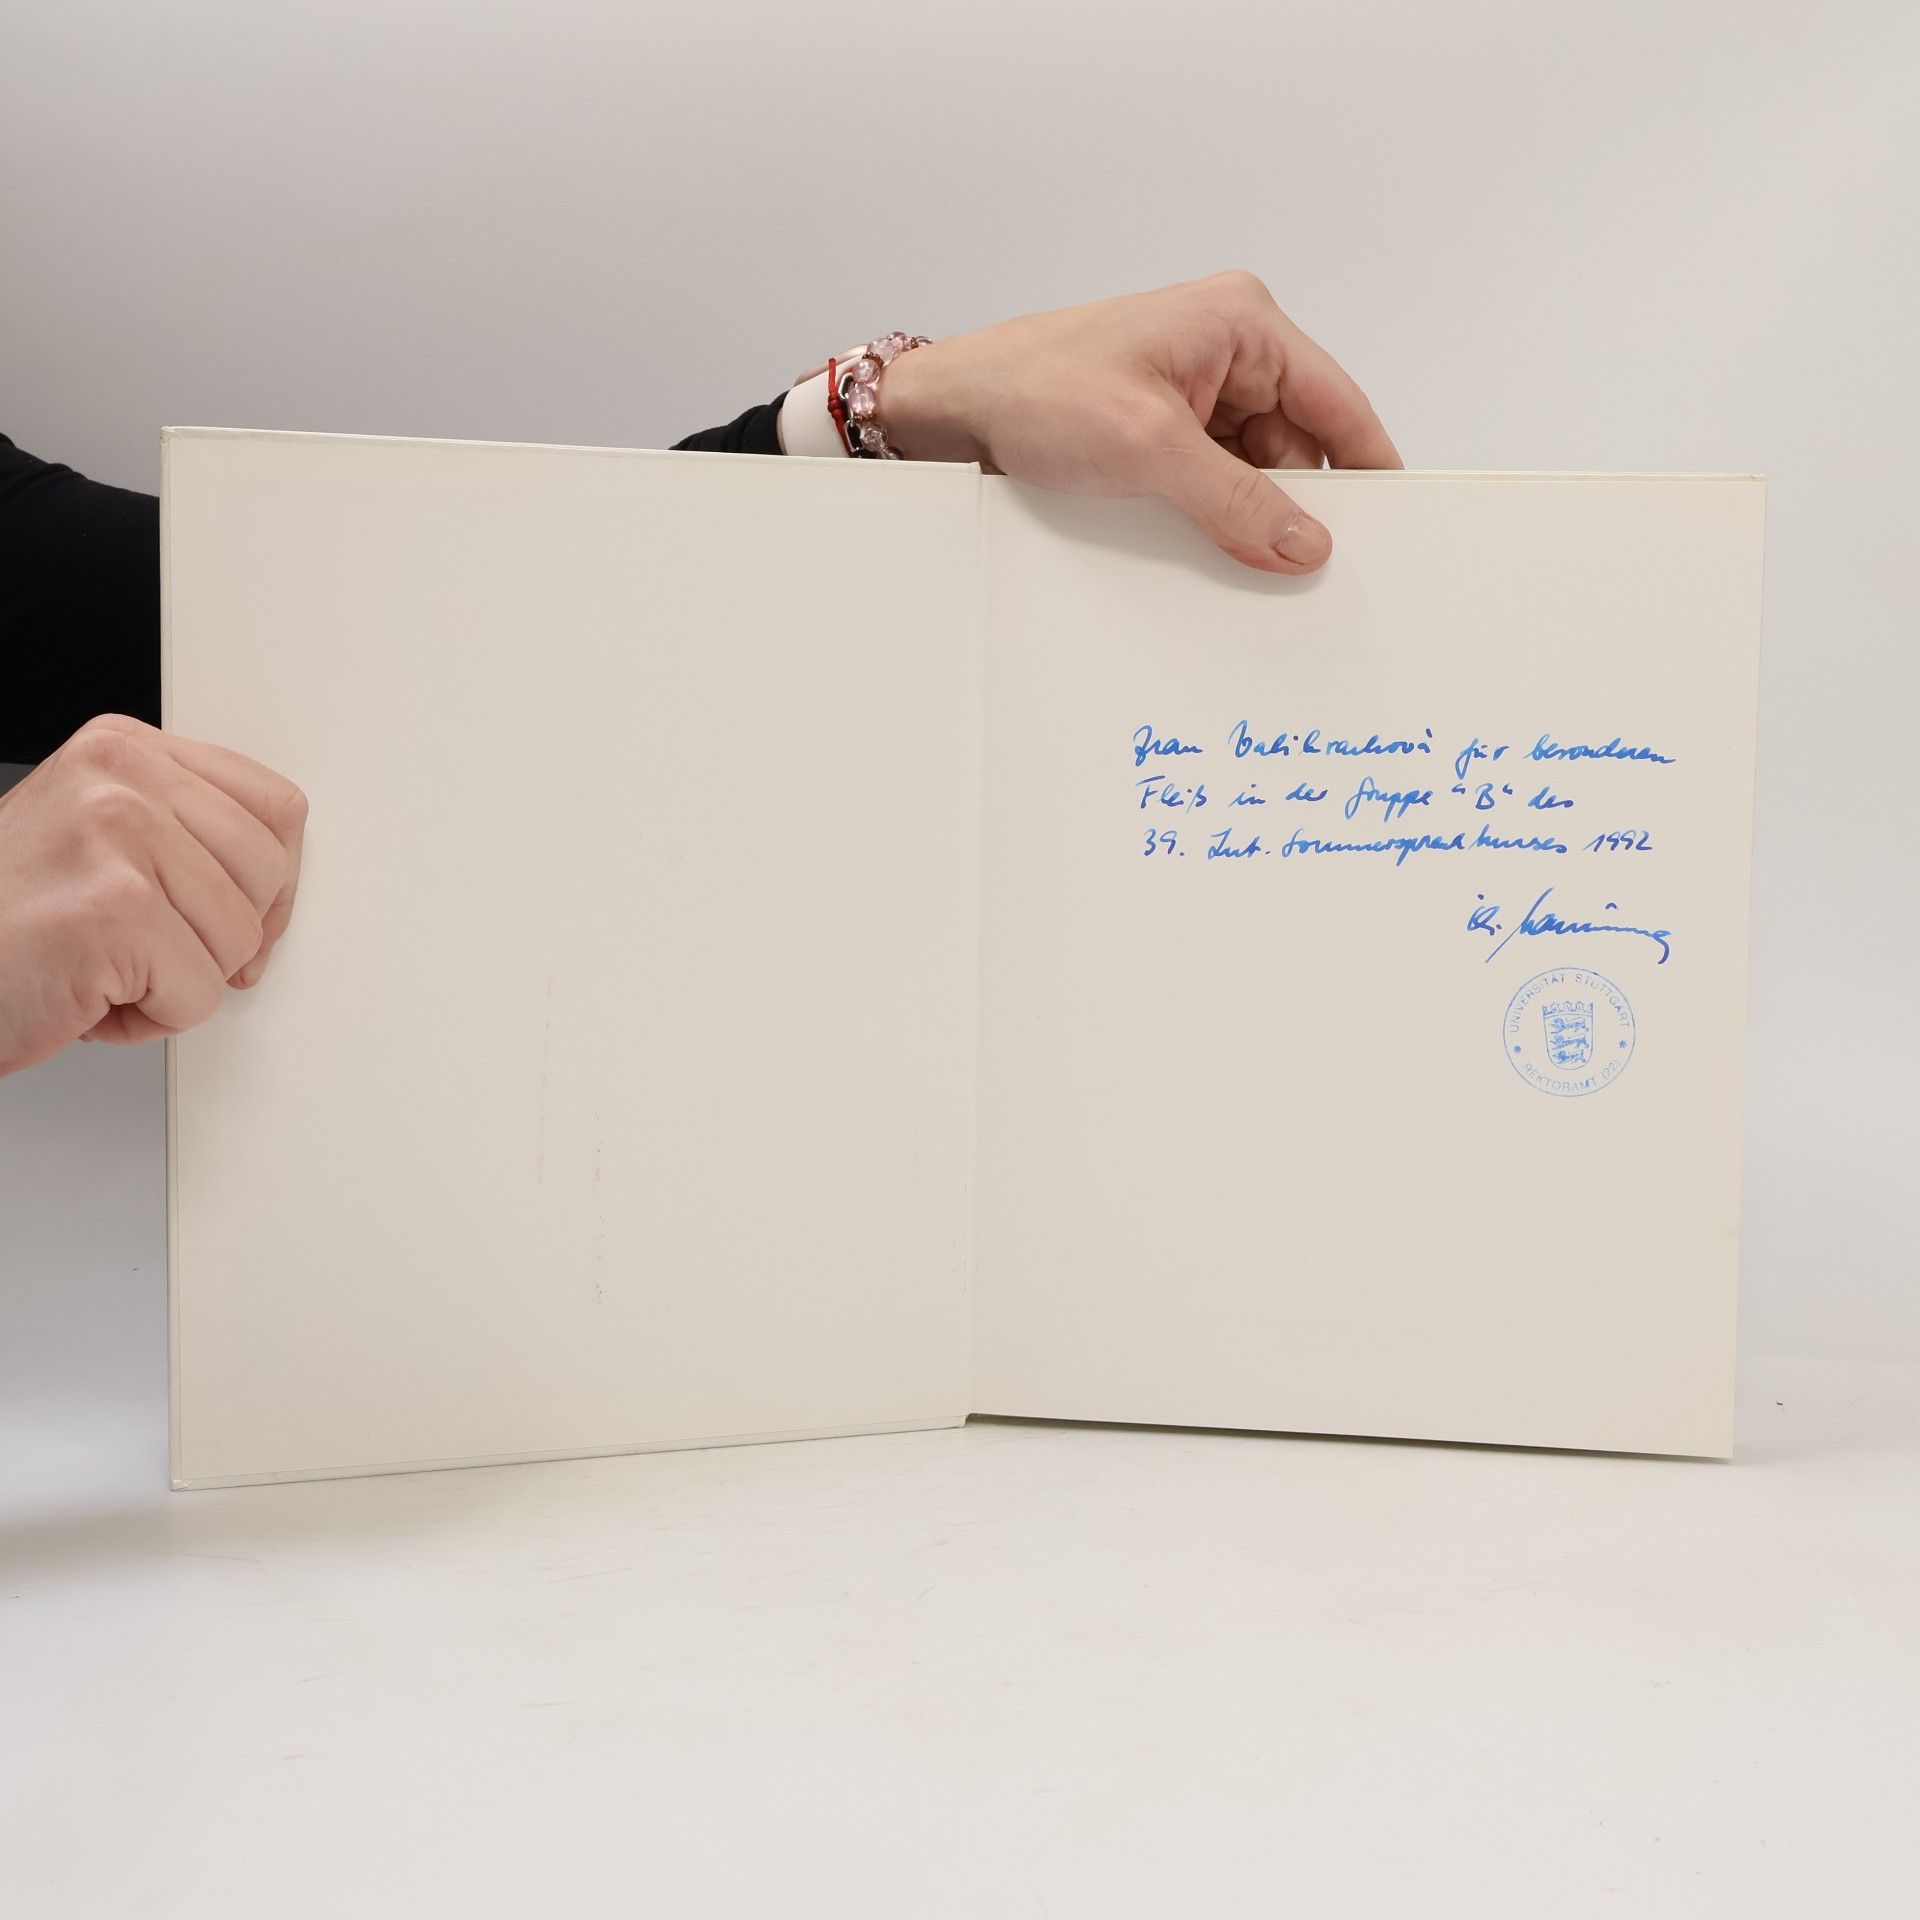 Frau für besonderen
Fleiß in der Gruppe "B" des
39. Int. Sommersprachkurses 1992
UNIVERSITÄT STUTTGART
* REKTORAMT (22) *